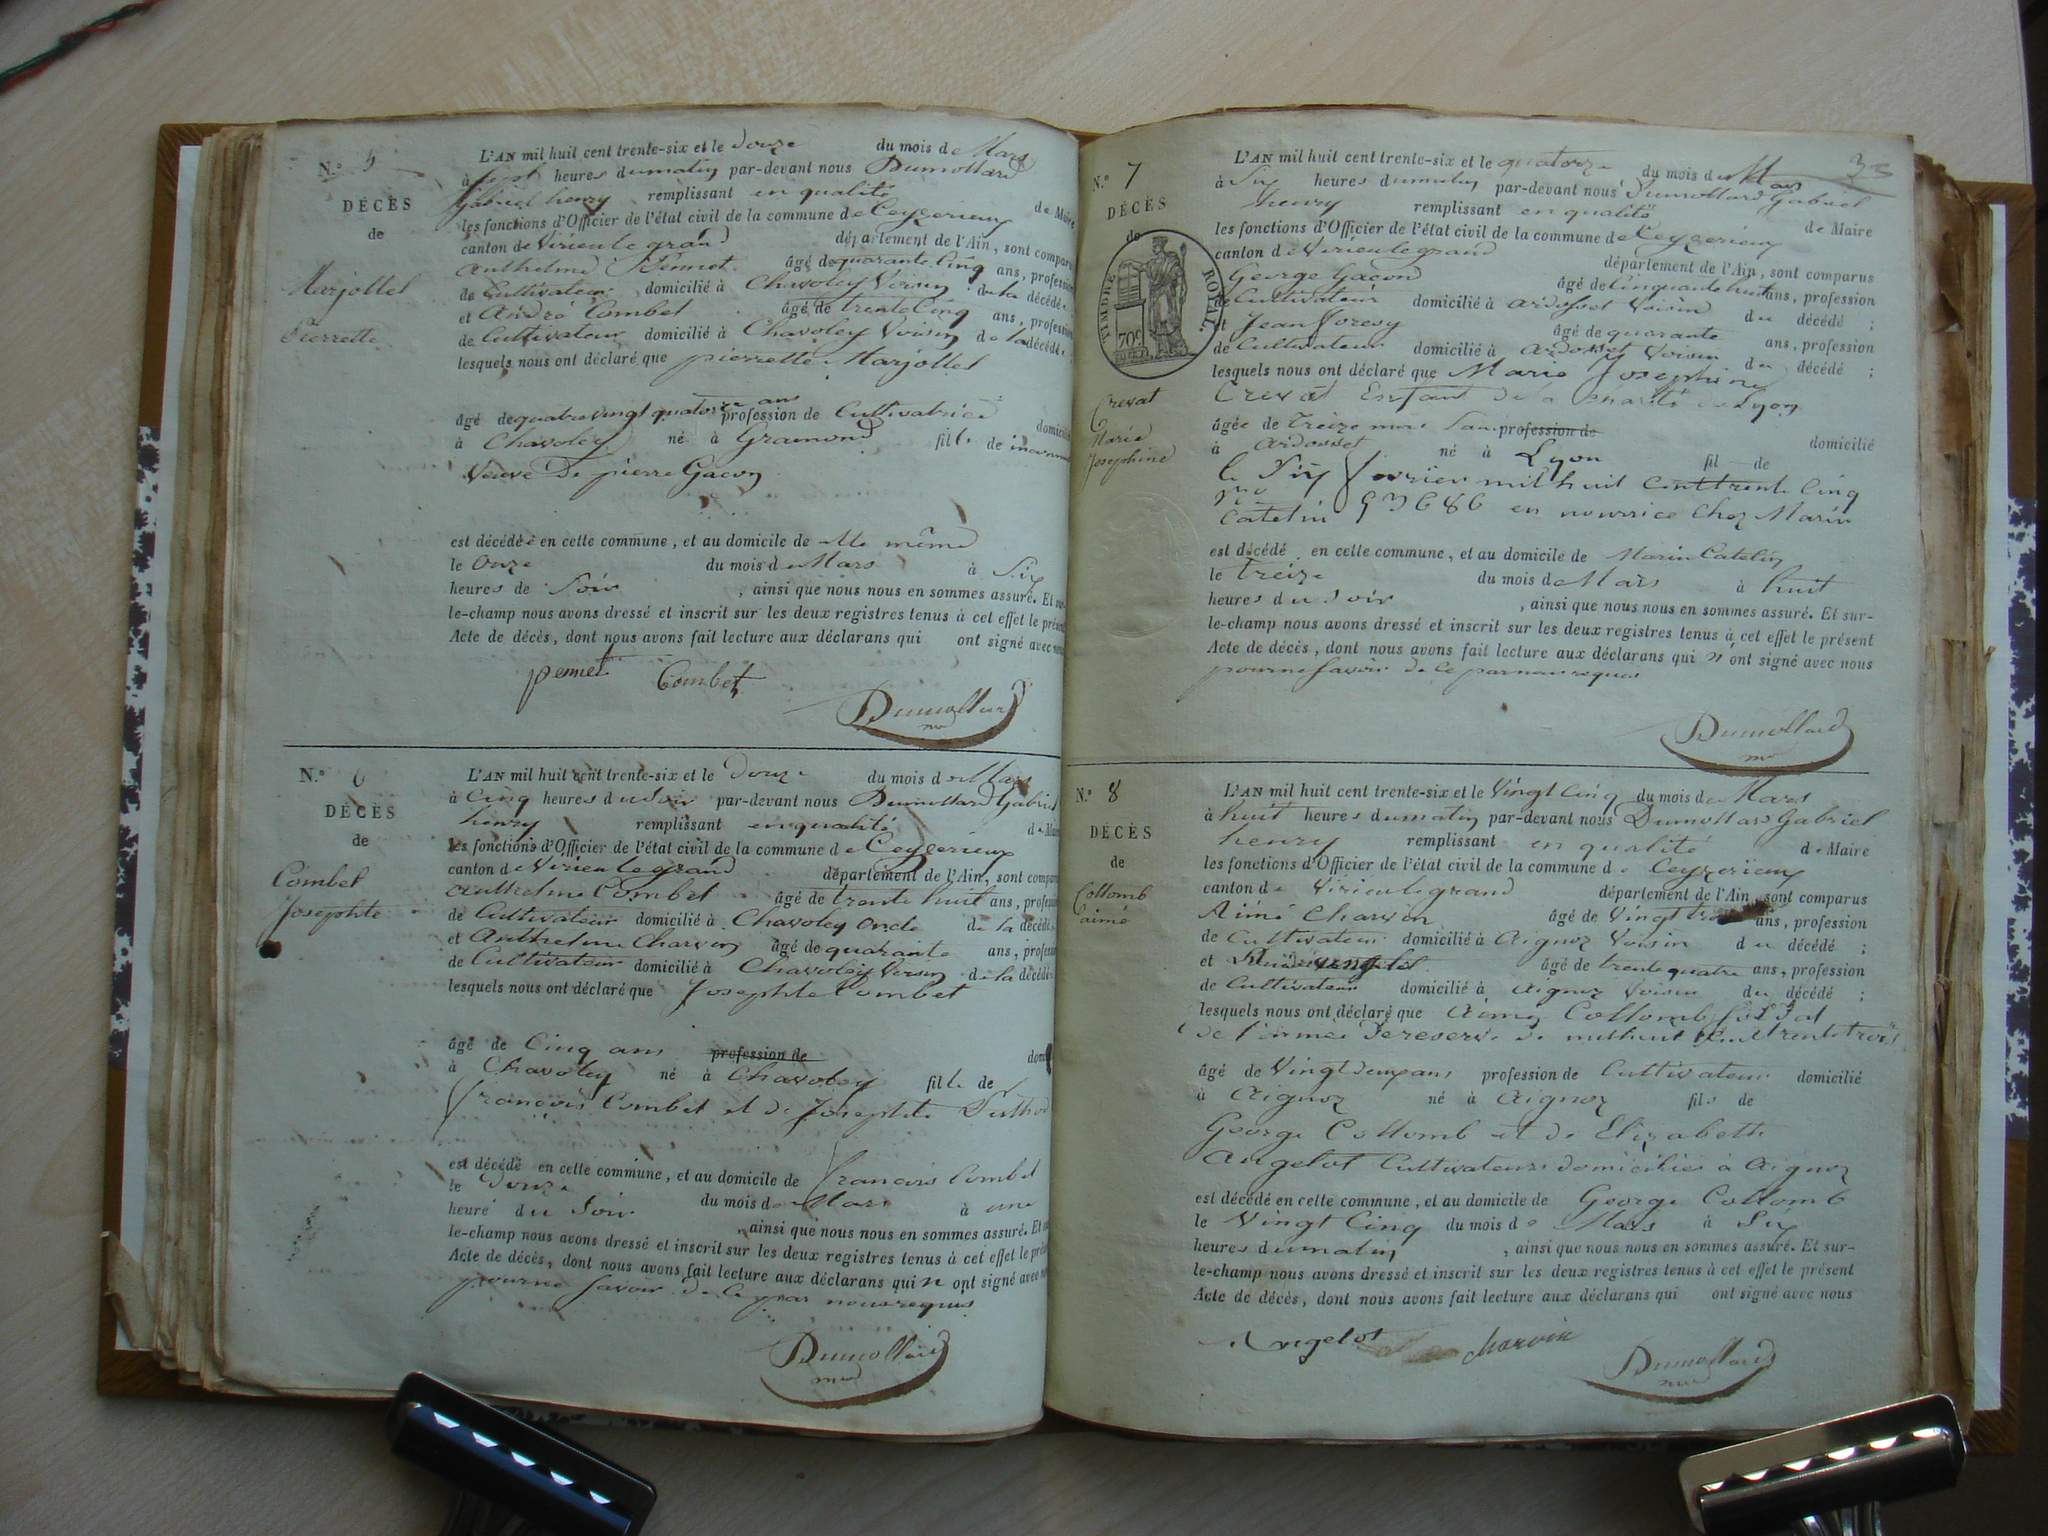 N.º 5
DÉCÈS
de
Marjollet
Pierrette
L'AN mil huit cent trente-six et le douze du mois de Mars
à sept heures du matin par-devant nous Dumollard
Gabriel henry remplissant en qualité de Maire
les fonctions d'Officier de l'état civil de la commune de Ceyzerieux
canton de Virieu le grand département de l'Ain, sont comparus
anthelme Pennet âgé de quarante cinq ans, profession
de Cultivateur domicilié à Chavoley Voisin de la décédée
et André Combet âgé de trente cinq ans, profession
de Cultivateur domicilié à Chavoley Voisin de la décédée
lesquels nous ont déclaré que pierrette Marjollet
âgé de quatre vingt quatorze ans profession de Cultivatrice domicilié
à Chavoley né à Gramond fille de
Veuve De pierre Gacon
est décédée en cette commune, et au domicile de elle même
le Onze du mois de Mars à Six
heures de Soir, ainsi que nous nous en sommes assuré. Et sur-
le-champ nous avons dressé et inscrit sur les deux registres tenus à cet effet le présent
Acte de décès, dont nous avons fait lecture aux déclarans qui ont signé avec nous
pennet Combet
Dumollard
N.º 6
DÉCÈS
de
Combet
Josephte
L'AN mil huit cent trente-six et le Douze du mois de Mars
à Cinq heures du Soir par-devant nous Dumollard Gabriel
henry remplissant en qualité de Maire
les fonctions d'Officier de l'état civil de la commune de Ceyzerieux
canton de Virieu le grand département de l'Ain, sont comparus
anthelme Combet âgé de trente huit ans, profession
de Cultivateur domicilié à Chavoley oncle de la décédée
et Anthelme Charvin âgé de quarante ans, profession
de Cultivateur domicilié à Chavoley Voisin de la décédée
lesquels nous ont déclaré que Josephte Combet
âgé de Cinq ans profession de
à Chavoley né à Chavoley fille de
françois Combet et de Josephte
est décédé en cette commune, et au domicile de françois Combet
le Douze du mois de Mars à une
heure du Soir, ainsi que nous nous en sommes assuré. Et sur-
le-champ nous avons dressé et inscrit sur les deux registres tenus à cet effet le présent
Acte de décès, dont nous avons fait lecture aux déclarans qui n'ont signé avec nous
pour ne savoir de ce par nous requis
Dumollard
35
N.º 7
DÉCÈS
de
TIMBRE ROYAL.
70c
Crevat
Marie
Josephine
L'AN mil huit cent trente-six et le quatorze du mois de Mars
à Six heures du matin par-devant nous Dumollard Gabriel
henry remplissant en qualité de Maire
les fonctions d'Officier de l'état civil de la commune de Ceyzerieux
canton de Virieu le grand département de l'Ain, sont comparus
George Gacond âgé de cinquante huit ans, profession
de Cultivateur domicilié à ardosset Voisin du décédé ;
et Jean âgé de quarante ans, profession
de Cultivateur domicilié à ardosset Voisin du décédé ;
lesquels nous ont déclaré que Marie Josephine
Crevat Enfant de la charité de Lyon
âgée de treize mois Sans profession de
à ardosset né à Lyon fil de domicilié
le Six fevrier mil huit cent trente Cinq
en nourrice chez Marin
Catelin
est décédé en cette commune, et au domicile de Marin Catelin
le treize du mois de Mars à huit
heures du soir, ainsi que nous nous en sommes assuré. Et sur-
le-champ nous avons dressé et inscrit sur les deux registres tenus à cet effet le présent
Acte de décès, dont nous avons fait lecture aux déclarans qui n'ont signé avec nous
pour ne savoir de ce par nous requis
Dumollard
N.º 8
DÉCÈS
de
Collomb
aimé
L'AN mil huit cent trente-six et le Vingt Cinq du mois de Mars
à huit heures du matin par-devant nous Dumollard Gabriel
henry remplissant en qualité de Maire
les fonctions d'Officier de l'état civil de la commune de Ceyzerieux
canton de Virieu le grand département de l'Ain, sont comparus
Aimé Charvin âgé de Vingt ans, profession
de Cultivateur domicilié à Aignoz Voisin du décédé ;
et âgé de trente quatre ans, profession
de Cultivateur domicilié à Aignoz Voisin du décédé ;
lesquels nous ont déclaré que Aimé Collomb soldat
de l'armée de reserve de mil huit cent trente trois
âgé de Vingt deux ans profession de Cultivateur domicilié
à Aignoz né à Aignoz fils de
George Collomb et de Elizabeth
Angelot Cultivateurs domiciliés à Aignoz
est décédé en cette commune, et au domicile de George Collomb
le Vingt Cinq du mois de Mars à Six
heures du matin, ainsi que nous nous en sommes assuré. Et sur-
le-champ nous avons dressé et inscrit sur les deux registres tenus à cet effet le présent
Acte de décès, dont nous avons fait lecture aux déclarans qui ont signé avec nous
Angelot Charvin
Dumollard